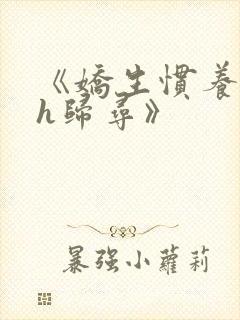 《嬌生慣養
h歸尋》
暴强小蘿莉